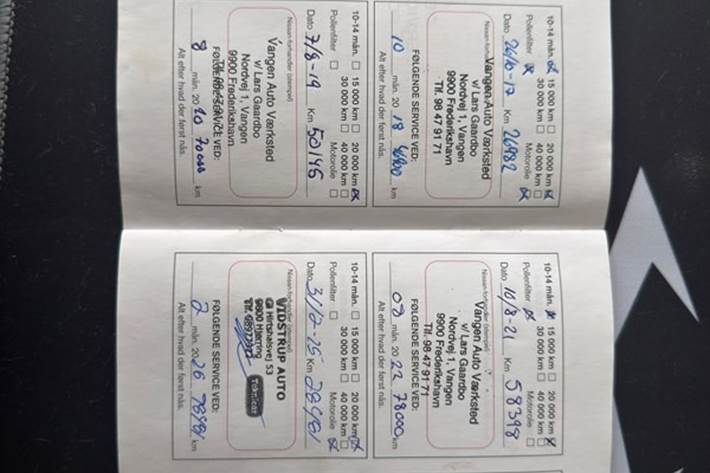 10-14 mån. 15 000 km 20 000 km
30 000 km 40 000 km
Pollenfilter Motorolie
Dato 26/10-17 Km 26982
Nissan-forhandler (stempel)
Vangen Auto Værksted
v/ Lars Gaardbo
Nordvej 1, Vangen
9900 Frederikshavn
Tlf. 98 47 91 71
FØLGENDE SERVICE VED:
10 mån. 20 18 km
Alt efter hvad der først nås.
10-14 mån. 15 000 km 20 000 km
30 000 km 40 000 km
Pollenfilter Motorolie
Dato 7/8-19 Km 50145
Nissan-forhandler (stempel)
Vangen Auto Værksted
v/ Lars Gaardbo
Nordvej 1, Vangen
9900 Frederikshavn
FØLGENDE SERVICE VED:
8 mån. 20 20 70000 km
Alt efter hvad der først nås.
10-14 mån. 15 000 km 20 000 km
30 000 km 40 000 km
Pollenfilter Motorolie
Dato 10/8-21 Km 58398
Nissan-forhandler (stempel)
Vangen Auto Værksted
v/ Lars Gaardbo
Nordvej 1, Vangen
9900 Frederikshavn
Tlf. 98 47 91 71
FØLGENDE SERVICE VED:
08 mån. 20 22 78000 km
Alt efter hvad der først nås.
10-14 mån. 15 000 km 20 000 km
30 000 km 40 000 km
Pollenfilter Motorolie
Dato Km
Nissan-forhandler (stempel)
VIDSTRUP AUTO
Hirtshalsvej 53
9800 Hjørring
Teknicar
FØLGENDE SERVICE VED:
2 mån. 20 26 km
Alt efter hvad der først nås.